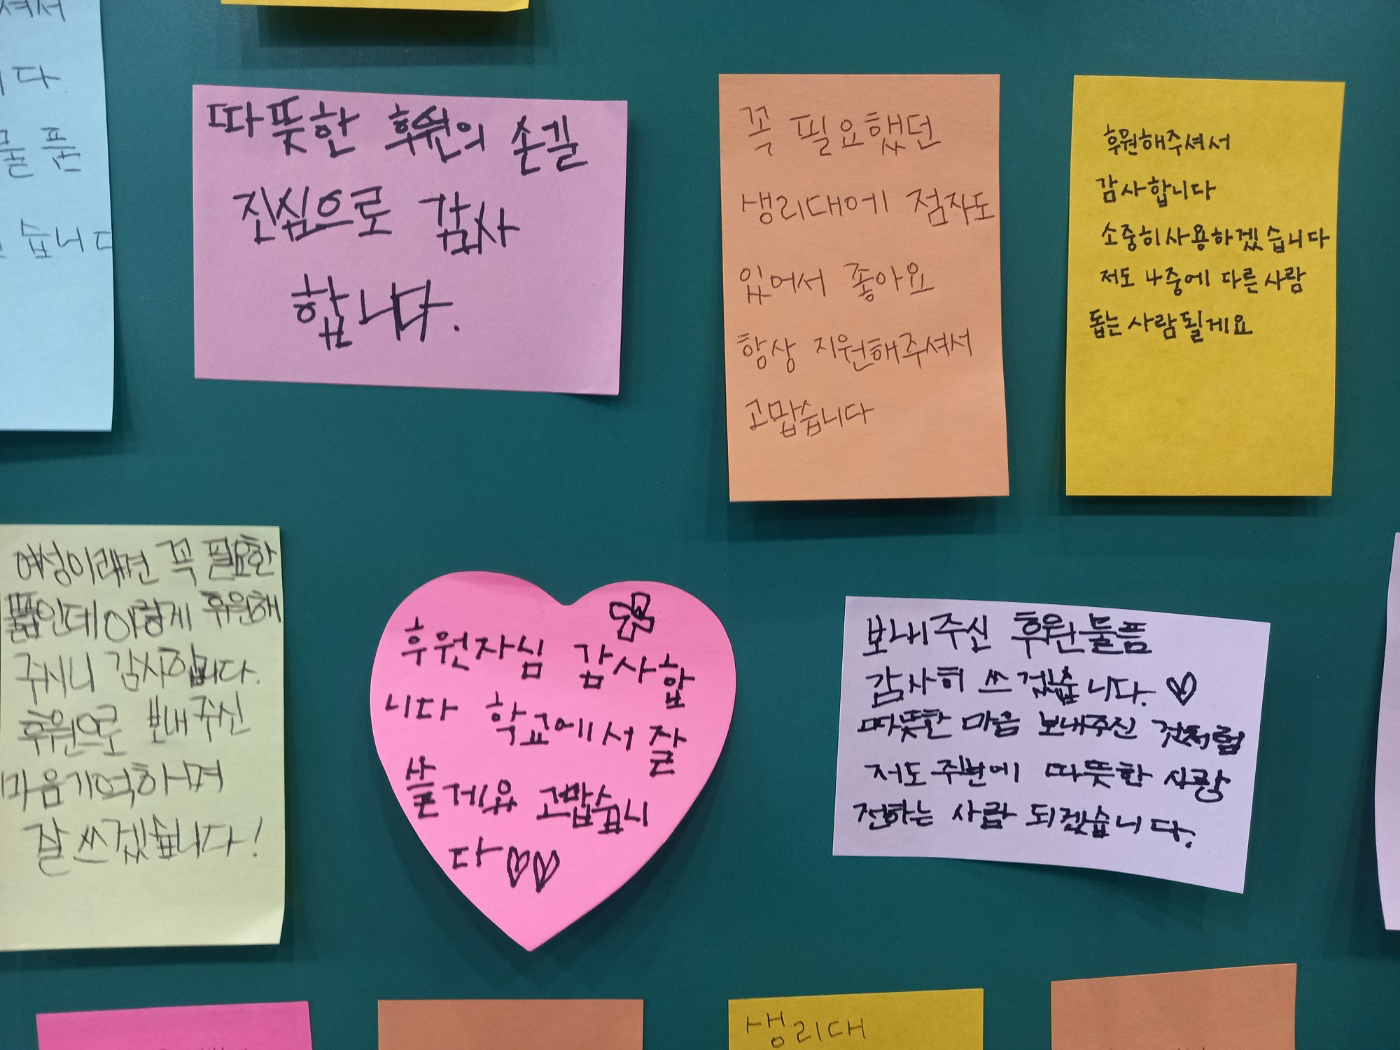 셔서
니다.
물품
습니다
따뜻한 후원의 손길
진심으로 감사
합니다.
꼭 필요했던
생리대에 점자도
있어서 좋아요
항상 지원해주셔서
고맙습니다
후원해주셔서
감사합니다
소중히사용하겠습니다
저도 나중에 다른사람
돕는 사람될게요
여성이라면 꼭 필요한
품인데 이렇게 후원해
주시니 감사합니다.
후원으로 보내주신
마음기억하며
잘 쓰겠습니다!
후원자님 감사합
니다 학교에서 잘
쓸게요 고맙습니
다♡♡
보내주신 후원물품
감사히 쓰겠습니다. ♡
따뜻한 마음 보내주신 것처럼
저도 주변에 따뜻한 사랑
전하는 사람 되겠습니다.
생리대